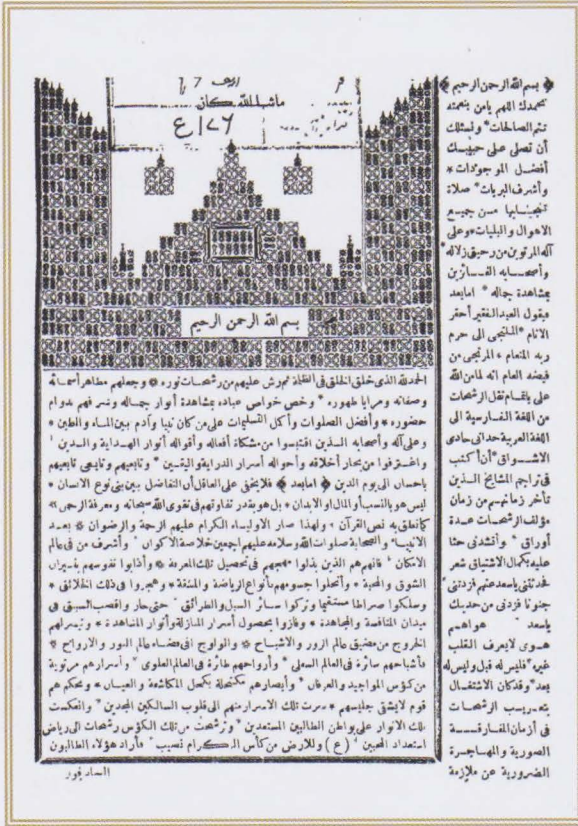 ماشاءالله كان
١٧٦ ع
بسم الله الرحمن الرحيم
الحمد لله الذى خلق الخلق فى الظلمة ثم رش عليهم من رشحات نوره * وجعلهم مظاهر أسمائه
وصفاته ومرايا ظهوره * وخص خواص عباده بمشاهدة أنوار جماله وشرفهم بدوام
حضوره * وأفضل الصلوات وأكمل التسليمات على من كان نبيا وآدم بين الماء والطين *
وعلى آله وأصحابه الذين اقتبسوا من مشكاة أفعاله وأقواله أنوار الهداية والدين *
واغترفوا من بحار أخلاقه وأحواله أسرار الدراية واليقين * وتابعيهم وتابعى تابعيهم
باحسان الى يوم الدين ﴿ امابعد ﴾ فلا يخفى على العاقل أن التفاضل بين بنى نوع الانسان *
ليس هو بالنسب أو المال او الابدان * بل هو بقدر تفاوتهم فى تقوى الله سبحانه ومعرفة الرحمن *
كما نطق به نص القرآن * ولهذا صار الاولياء الكرام عليهم الرحمة والرضوان * بعد
الانبياء والصحابة صلوات الله وسلامه عليهم اجمعين خلاصة الاكوان * وأشرف من فى عالم
الامكان * فانهم هم الذين بذلوا مهجهم فى تحصيل تلك المعرفة * وأذابوا نفوسهم بنيران
الشوق والمحبة * وأنحلوا جسومهم بأنواع الرياضة والمشقة * وهجروا فى ذلك الخلائق *
وسلكوا صراطا مستقيما وتركوا سائر السبل والطرائق * حتى حازوا قصب السبق فى
ميدان المنافسة والمجاهدة * وفازوا بحصول أسرار المنازلة وأنوار المشاهدة * وتيسر لهم
الخروج من مضيق عالم الزور والاشباح * والولوج الى فضاء عالم النور والارواح *
فأشباحهم سائرة فى العالم السفلى * وأرواحهم طائرة فى العالم العلوى * وأسرارهم مرتوية
من كؤس المواجيد والعرفان * وأبصارهم مكتحلة بكحل المكاشفة والعيان * وبحكم هم
قوم لا يشقى جليسهم * سرت تلك الاسرار منهم الى قلوب السالكين المجدين * وانعكست
تلك الانوار على بواطن الطالبين المستعدين * وترشحت من تلك الكؤس رشحات الى رياض
استعداد المحبين * (ع) وللارض من كأس الكرام نصيب * فأراد هؤلاء الطالبون
﴿ بسم الله الرحمن الرحيم ﴾
نحمدك اللهم يامن بنعمته
تتم الصالحات * ونسئلك
أن تصلى على حبيبك
أفضل الموجودات *
وأشرف البريات * صلاة
تنجينا بها من جميع
الاهوال والبليات * وعلى
آله المرتوين من رحيق زلاله *
وأصحابه الفائزين
بمشاهدة جماله * امابعد
فيقول العبد الفقير أحقر
الانام * الملتجى الى حرم
ربه المنعام * المرتجى من
فيضه العام انه لما من الله
على باتمام نقل الرشحات
من اللغة الفارسية الى
اللغة العربية حدانى حادى
الاشواق * أن أكتب
فى تراجم المشايخ الذين
تأخر زمانهم من زمان
مؤلف الرشحات عدة
أوراق * وأنشدنى حثا
عليه بكمال الاشتياق شعر
فحدثتنى ياسعد عنهم فزدتنى *
جنونا فزدنى من حديثك
ياسعد * هواهم
هوى لايعرف القلب
غيره * فليس له قبل وليس له
بعد * وقد كان الاشتغال
بتعريب الرشحات
فى أزمان المفارقة
الصورية والمهاجرة
الضرورية عن ملازمة